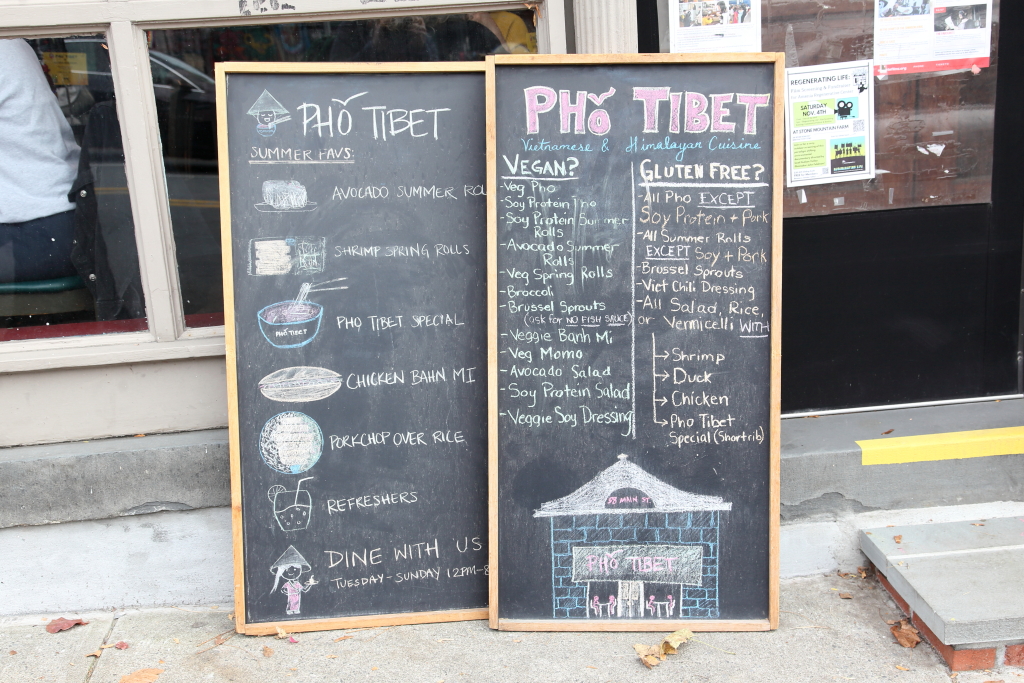 PHỞ TIBET
SUMMER FAVS:
AVOCADO SUMMER ROL
SHRIMP SPRING ROLLS
PHỌ TIBET
PHỌ TIBET SPECIAL
CHICKEN BAHN MI
PORKCHOP OVER RICE
REFRESHERS
DINE WITH US
TUESDAY-SUNDAY 12PM-8
PHỞ TIBET
Vietnamese & Himalayan Cuisine
VEGAN?
-Veg Pho
-Soy Protein
-Soy Protein Summer
Rolls
-Avocado Summer
Rolls
-Veg Spring Rolls
-Broccoli
-Brussel Sprouts
(ask for NO FISH SAUCE)
-Veggie Banh Mi
-Veg Momo
-Avocado Salad
-Soy Protein Salad
-Veggie Soy Dressing
GLUTEN FREE?
-All Pho EXCEPT
Soy Protein + Pork
-All Summer Rolls
EXCEPT Soy + Pork
-Brussel Sprouts
-Viet Chili Dressing
-All Salad, Rice,
or Vermicelli WITH
→Shrimp
→Duck
→Chicken
→Pho Tibet
Special (Short rib)
58 MAIN ST.
PHỞ TIBET
REGENERATING LIFE:
SATURDAY
NOV. 4TH
AT STONE MOUNTAIN FARM